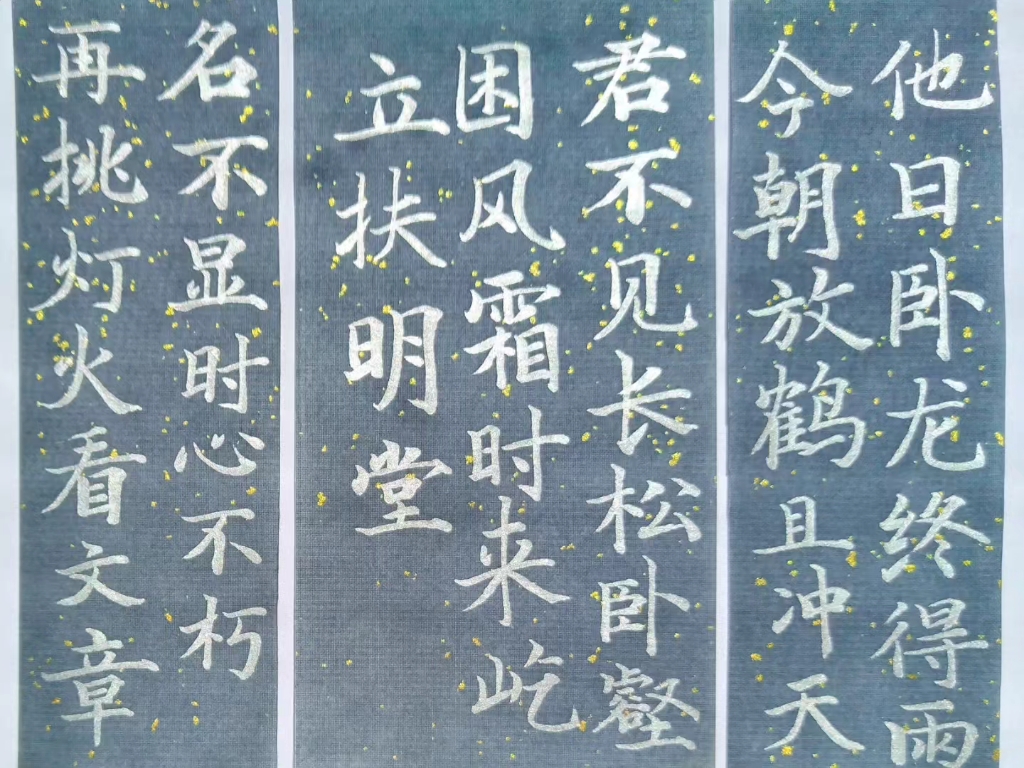 他日卧龙终得雨
今朝放鹤且冲天
君不见长松卧壑
困风霜时来屹
立扶明堂
名不显时心不朽
再挑灯火看文章